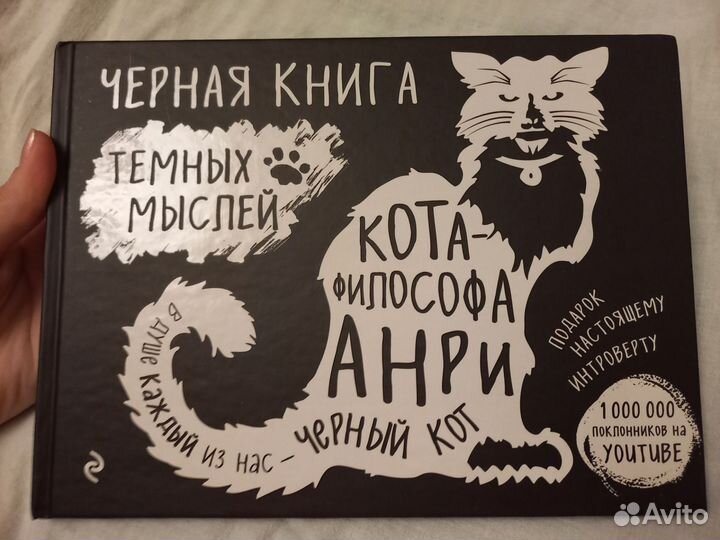 ЧЕРНАЯ КНИГА
ТЕМНЫХ
МЫСЛЕЙ
КОТА-
ФИЛОСОФА
АНРИ
В ДУШЕ КАЖДЫЙ ИЗ НАС – ЧЕРНЫЙ КОТ
ПОДАРОК
НАСТОЯЩЕМУ
ИНТРОВЕРТУ
1 000 000
ПОКЛОННИКОВ НА
YOUTUBE
Avito